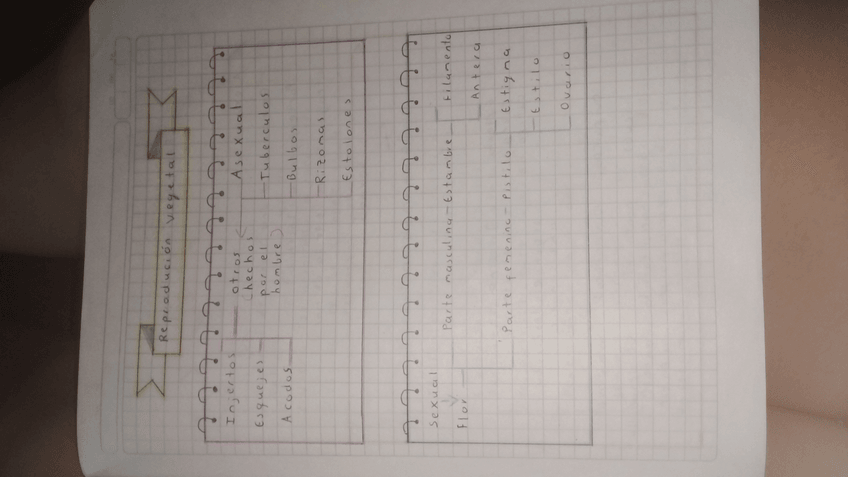 Reprodución vegetal
Asexual
Tuberculos
Bulbos
Rizomas
Estolones
otros
(hechos
por el
hombre)
Injertos
Esquejes
Acodos
Sexual
Flor
Parte masculina - Estambre
Filamento
Antera
Parte femenina - Pistilo
Estigma
Estilo
Ovario